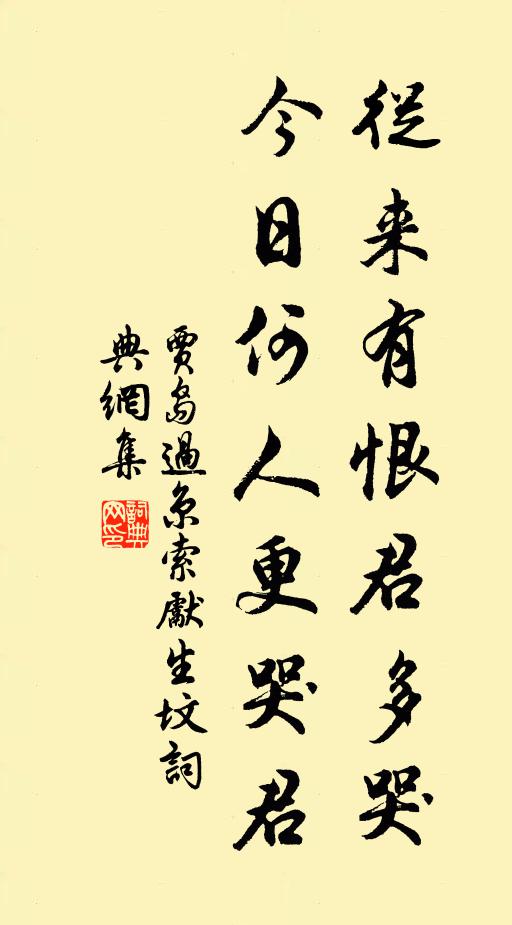 從来有恨君多哭
今日何人更哭君
賈島過京索獻生坟詞
典網集
詞典网印